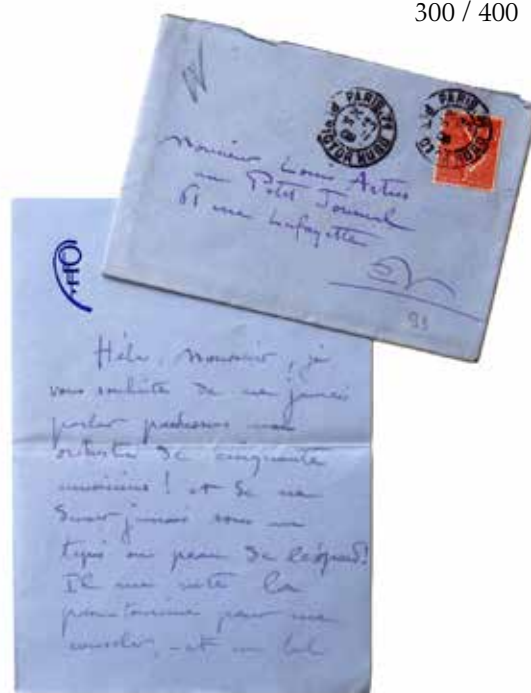 300 / 400
PARIS.71
VICTOR HUGO
PARIS
Monsieur Louis Artus
au Petit Journal
61 rue Lafayette
EV
93
Hélas, Monsieur, je
vous souhaite de ne jamais
parler par dessus un
orchestre de cinquante
musiciens ! et de ne
danser jamais sous un
tapis en peau de léopard!
Il me reste la
pantomime pour me
consoler, - et un bel